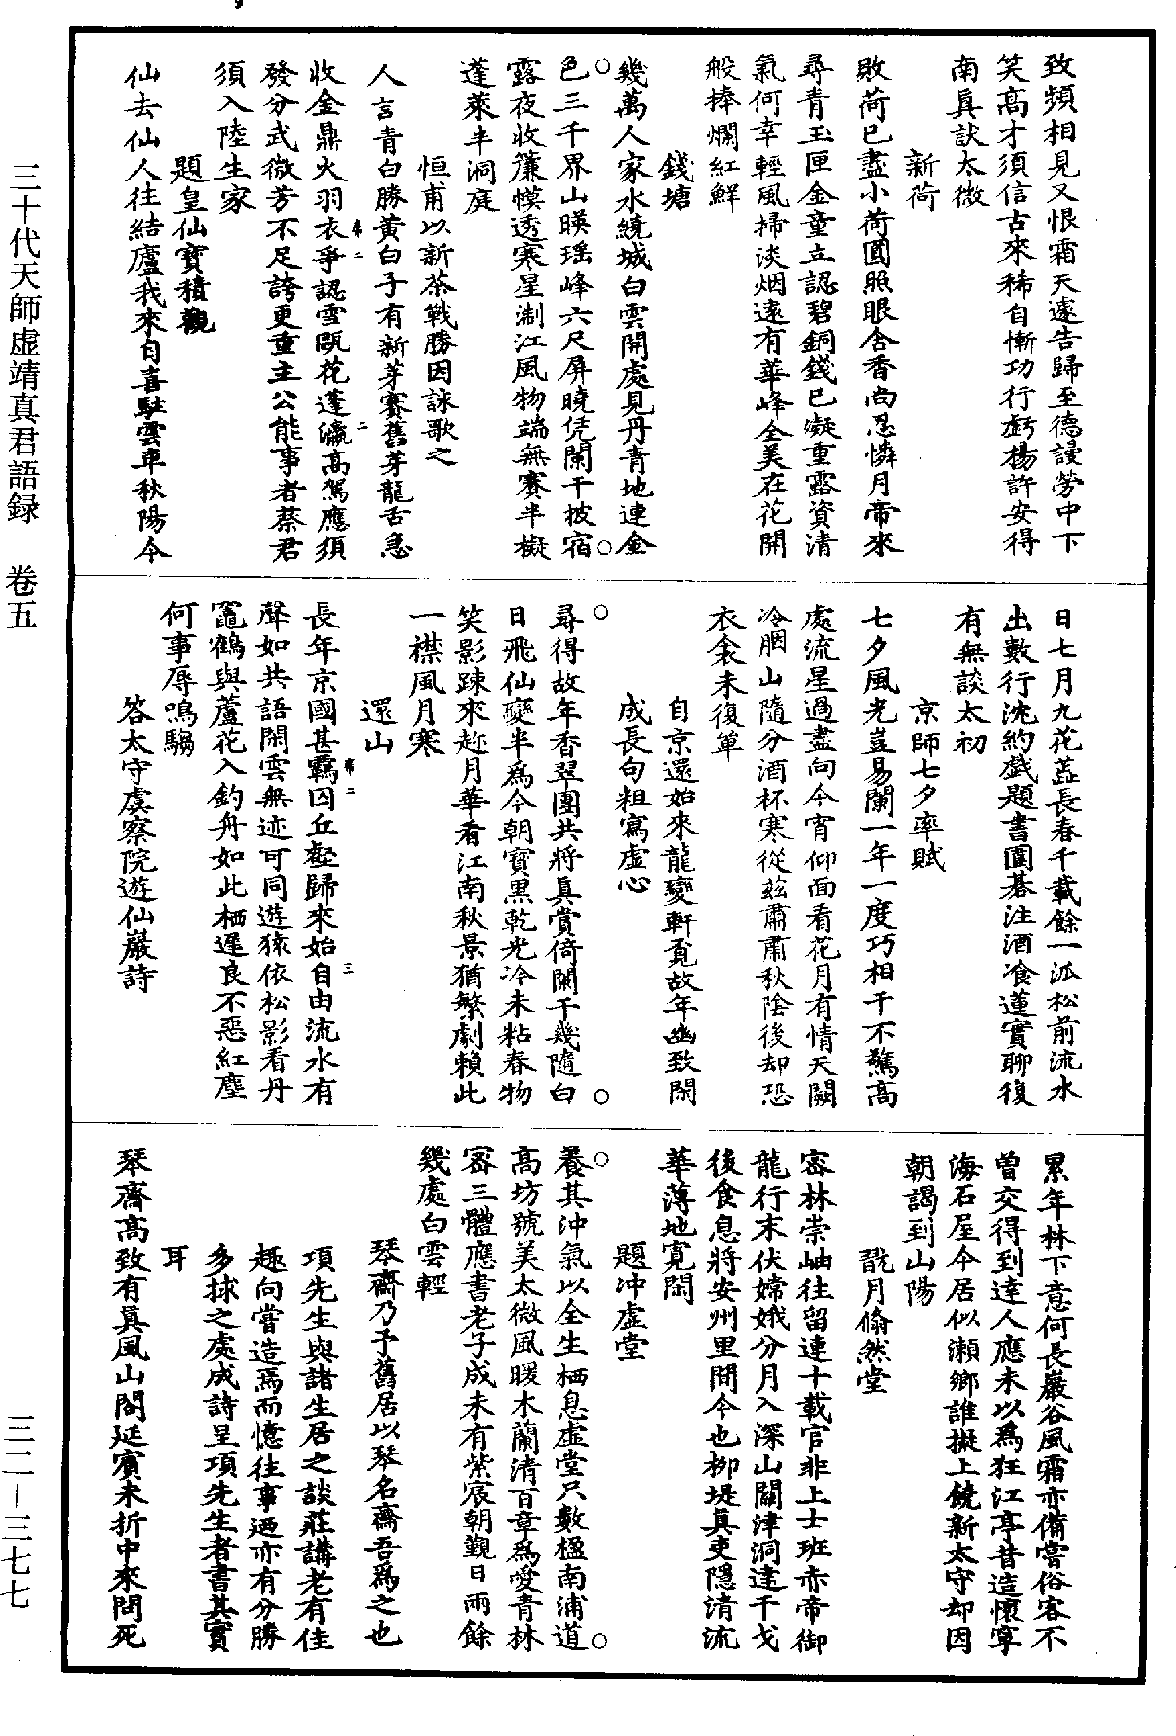 致頻相見又恨霜天遽告歸至德謾勞中下
笑高才須信古來稀自慚功行虧楊許安得
南真訣太微
新荷
敗荷已盡小荷圓照眼含香尚忍憐月帝來
尋青玉匣金童立認碧銅錢已凝重露資清
氣何幸輕風掃淡烟遠有華峰全美在花開
般捧爛紅鮮
錢塘
幾萬人家水繞城白雲開處見丹青地連金
色三千界山暎瑶峰六尺屏曉凭闌干披宿
露夜收簾幙透寒星淛江風物端無賽半擬
蓬萊半洞庭
恒甫以新茶戰勝因詠歌之
人言青白勝黃白子有新芽賽舊芽龍舌急
收金鼎火羽衣爭認雪甌花蓬瀛高駕應須
發分武微芳不足誇更重主公能事者蔡君
須入陸生家
題皇仙寶積觀
仙去仙人往結廬我來自喜駐雲車秋陽今
日七月九花蓋長春千載餘一派松前流水
出數行沈約戲題書圍碁注酒飡蓮實聊復
有無談太初
京師七夕率賦
七夕風光豈易闌一年一度巧相干不驚高
處流星過盡向今宵仰面看花月有情天闕
冷胭山隨分酒杯寒從兹肅肅秋陰後却恐
衣衾未復單
自京還始來龍變軒覔故年幽致閑
成長句粗寫虛心
尋得故年香翠團共將真賞倚闌干幾隨白
日飛仙變半為今朝寶黑乾光冷未粘春物
笑影踈來趂月華看江南秋景猶繁劇賴此
一襟風月寒
還山
長年京國甚羈囚丘壑歸來始自由流水有
聲如共語閑雲無迹可同遊猿依松影看丹
竈鶴與蘆花入釣舟如此栖遲良不惡紅塵
何事辱鳴騶
答太守虞察院遊仙巖詩
累年林下意何長巖谷風霜亦備嘗俗客不
曾交得到達人應未以為狂江亭昔造懷寧
海石屋今居似瀨鄉誰擬上饒新太守却因
朝謁到山陽
翫月翛然堂
密林崇岫往留連十載官非上士班赤帝御
龍行末伏嫦娥分月入深山關津洞達干戈
後食息將安州里間今也柳堤真吏隱清流
華薄地寬閑
題冲虛堂
養其沖氣以全生栖息虛堂只數楹南浦道
高坊號美太微風暖木蘭清百章為愛青林
密三體應書老子成未有紫宸朝覲日雨餘
幾處白雲輕
琴齋乃予舊居以琴名齋吾為之也
項先生與諸生居之談莊講老有佳
趣向嘗造焉而憶往事迺亦有分勝
多捄之處成詩呈項先生者書其實
耳
琴齋高致有真風山閣延賓未折中來問死
三十代天師虛靖真君語録　卷五
三二－三七七